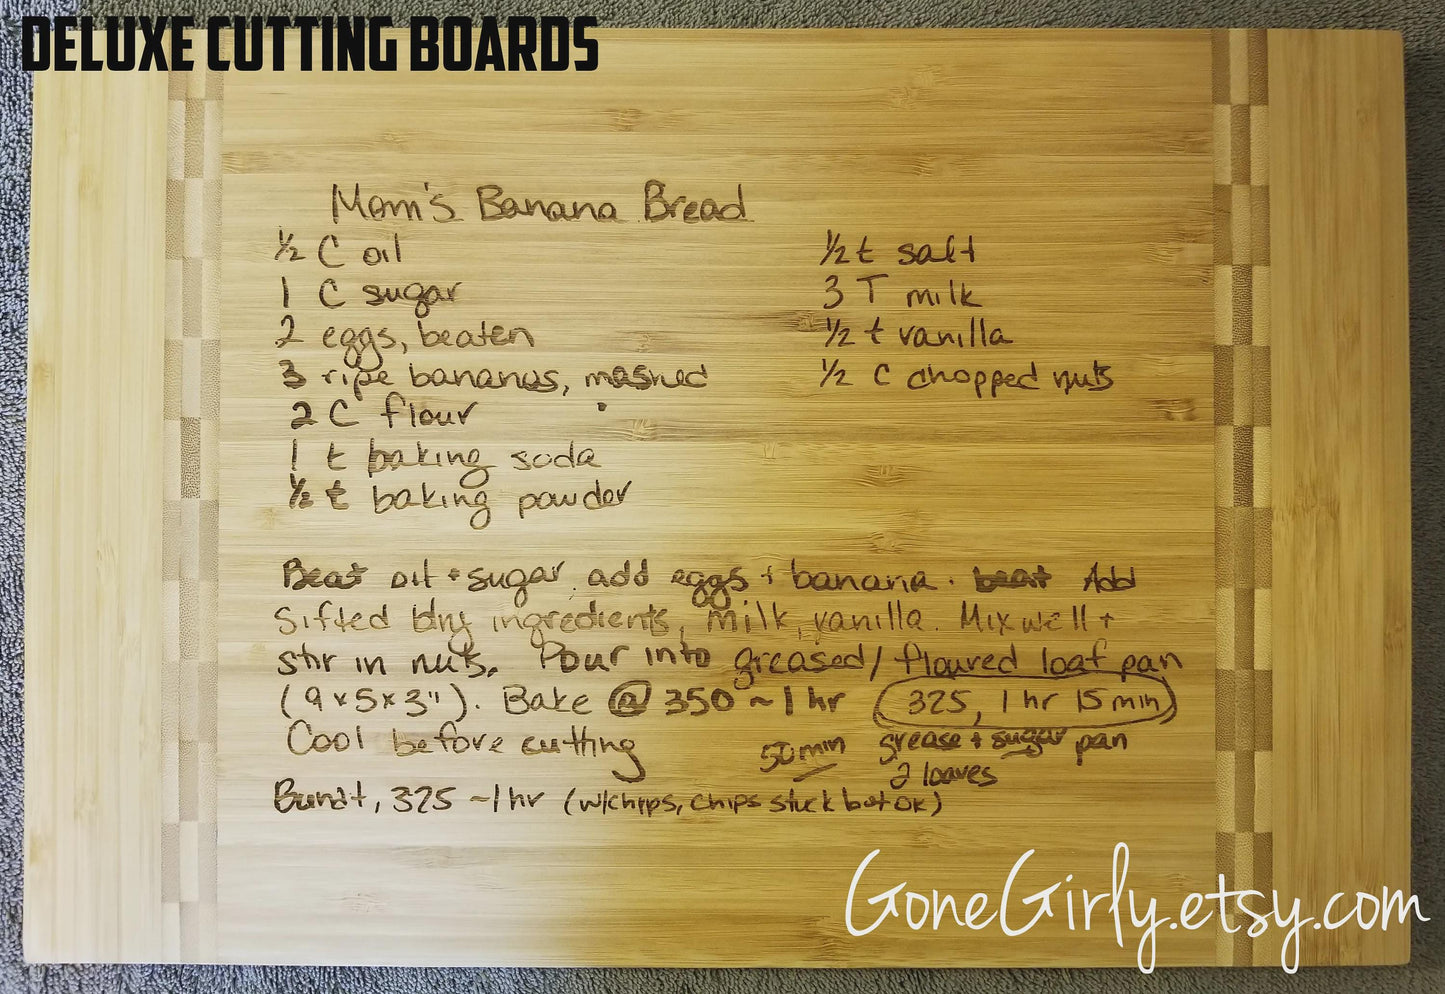 DELUXE CUTTING BOARDS
Mom's Banana Bread
½ C oil
1 C sugar
2 eggs, beaten
3 ripe bananas, mashed
2 C flour
1 t baking soda
½ t baking powder
½ t salt
3 T milk
½ t vanilla
½ C chopped nuts
Beat oil + sugar, add eggs + banana. beat Add
sifted dry ingredients, milk, vanilla. Mix well +
stir in nuts. Pour into greased/floured loaf pan
(9x5x3"). Bake @ 350 ~1 hr (325, 1 hr 15 min)
Cool before cutting 50 min grease + sugar pan
2 loaves
Bundt, 325 ~1 hr (w/chips, chips stuck bot ok)
GoneGirly.etsy.com